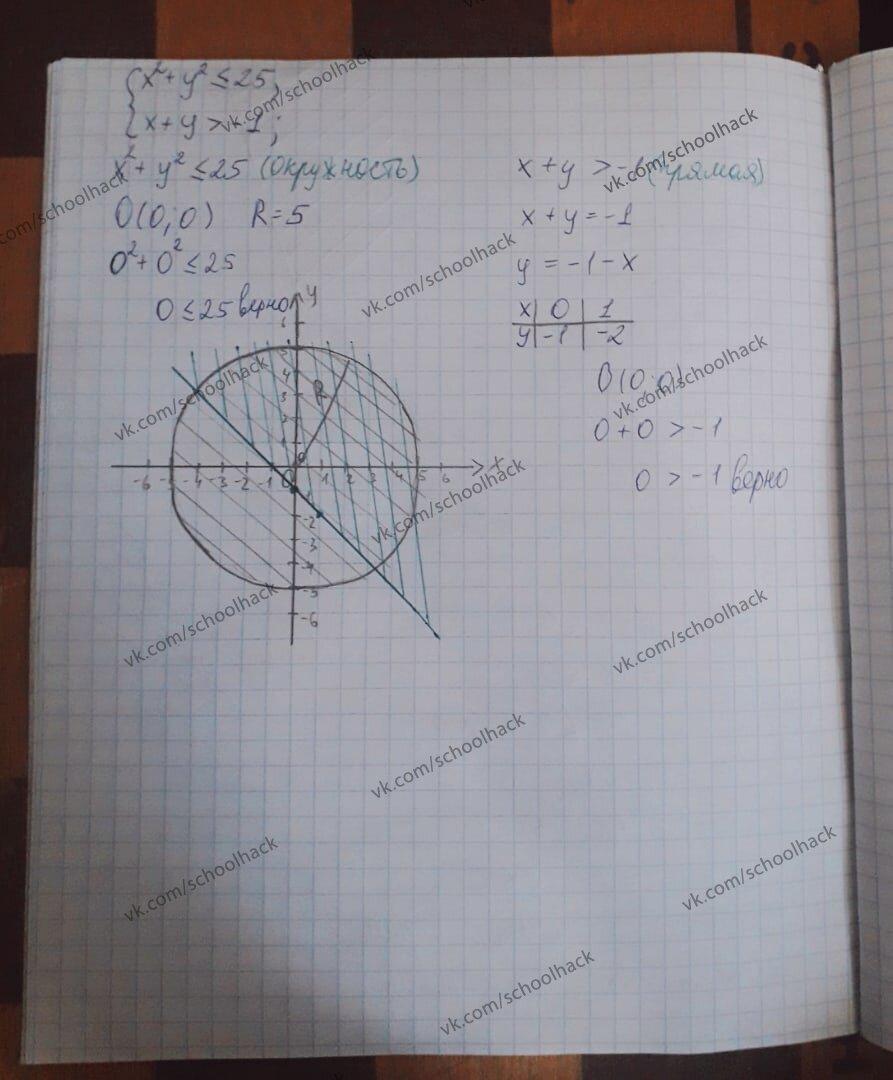 x² + y² ≤ 25,
x + y > 1;
x² + y² ≤ 25 (окружность)
O(0;0) R=5
0² + 0² ≤ 25
0 ≤ 25 верно
x + y > -1 (прямая)
x + y = -1
y = -1 - x
x | 0 | 1
y | -1 | -2
O(0;0)
0 + 0 > -1
0 > -1 верно
y
6
5
4
3
R
-6 -5 -4 -3 -2 -1 0 1 2 3 4 5 6 x
-2
-3
-4
-5
-6
vk.com/schoolhack
vk.com/schoolhack
vk.com/schoolhack
vk.com/schoolhack
vk.com/schoolhack
vk.com/schoolhack
vk.com/schoolhack
vk.com/schoolhack
vk.com/schoolhack
vk.com/schoolhack
vk.com/schoolhack
vk.com/schoolhack
vk.com/schoolhack